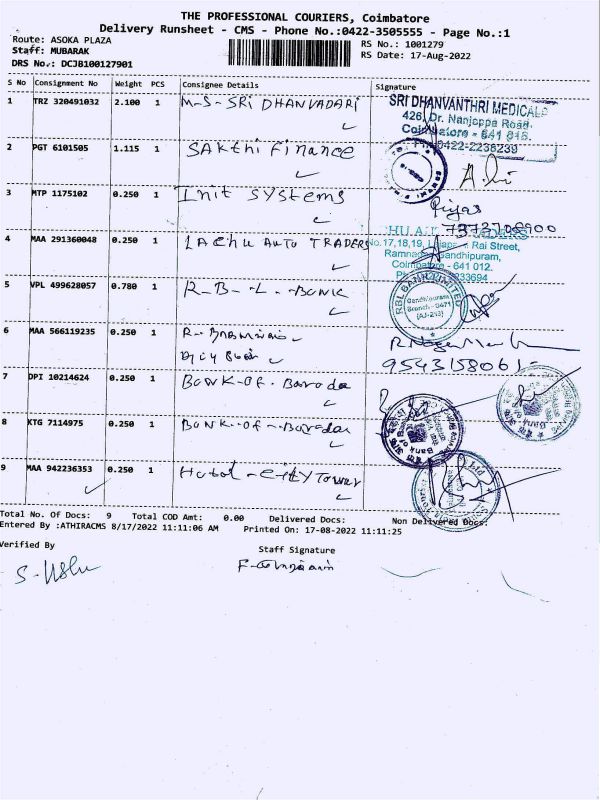 THE PROFESSIONAL COURIERS, Coimbatore
Delivery Runsheet - CMS - Phone No.:0422-3505555 - Page No.:1
Route: ASOKA PLAZA
Staff: MUBARAK
DRS No.: DCJB100127901
RS No.: 1001279
RS Date: 17-Aug-2022
S No Consignment No Weight PCS Consignee Details Signature
1 TRZ 320491032 2.100 1 M-S-SRI DHANVADARI
SRI DHANVANTHRI MEDICALS
426, Dr. Nanjappa Road
Coimbatore - 641 018.
Ph: 0422-2238239
2 PGT 6101505 1.115 1 SAKthi Finance
3 MTP 1175102 0.250 1 Init Systems
7373708900
4 MAA 291360048 0.250 1 LACHU AUTO TRADERS
No.17,18,19, Rai Street,
Gandhipuram,
Coimbatore - 641 012.
5 VPL 499628057 0.780 1 R-B-L-Bank
RBL BANK LIMITED
Gandhipuram
Branch - 0471
6 MAA 566119235 0.250 1
9543158061-
7 DPI 10214624 0.250 1 Bank-of-Baroda
8 KTG 7114975 0.250 1 Bank-of-Baroda
9 MAA 942236353 0.250 1 Hotel-City Tower
Total No. Of Docs: 9 Total COD Amt: 0.00 Delivered Docs: Non Delivered Docs:
Entered By :ATHIRACMS 8/17/2022 11:11:06 AM Printed On: 17-08-2022 11:11:25
Verified By
Staff Signature